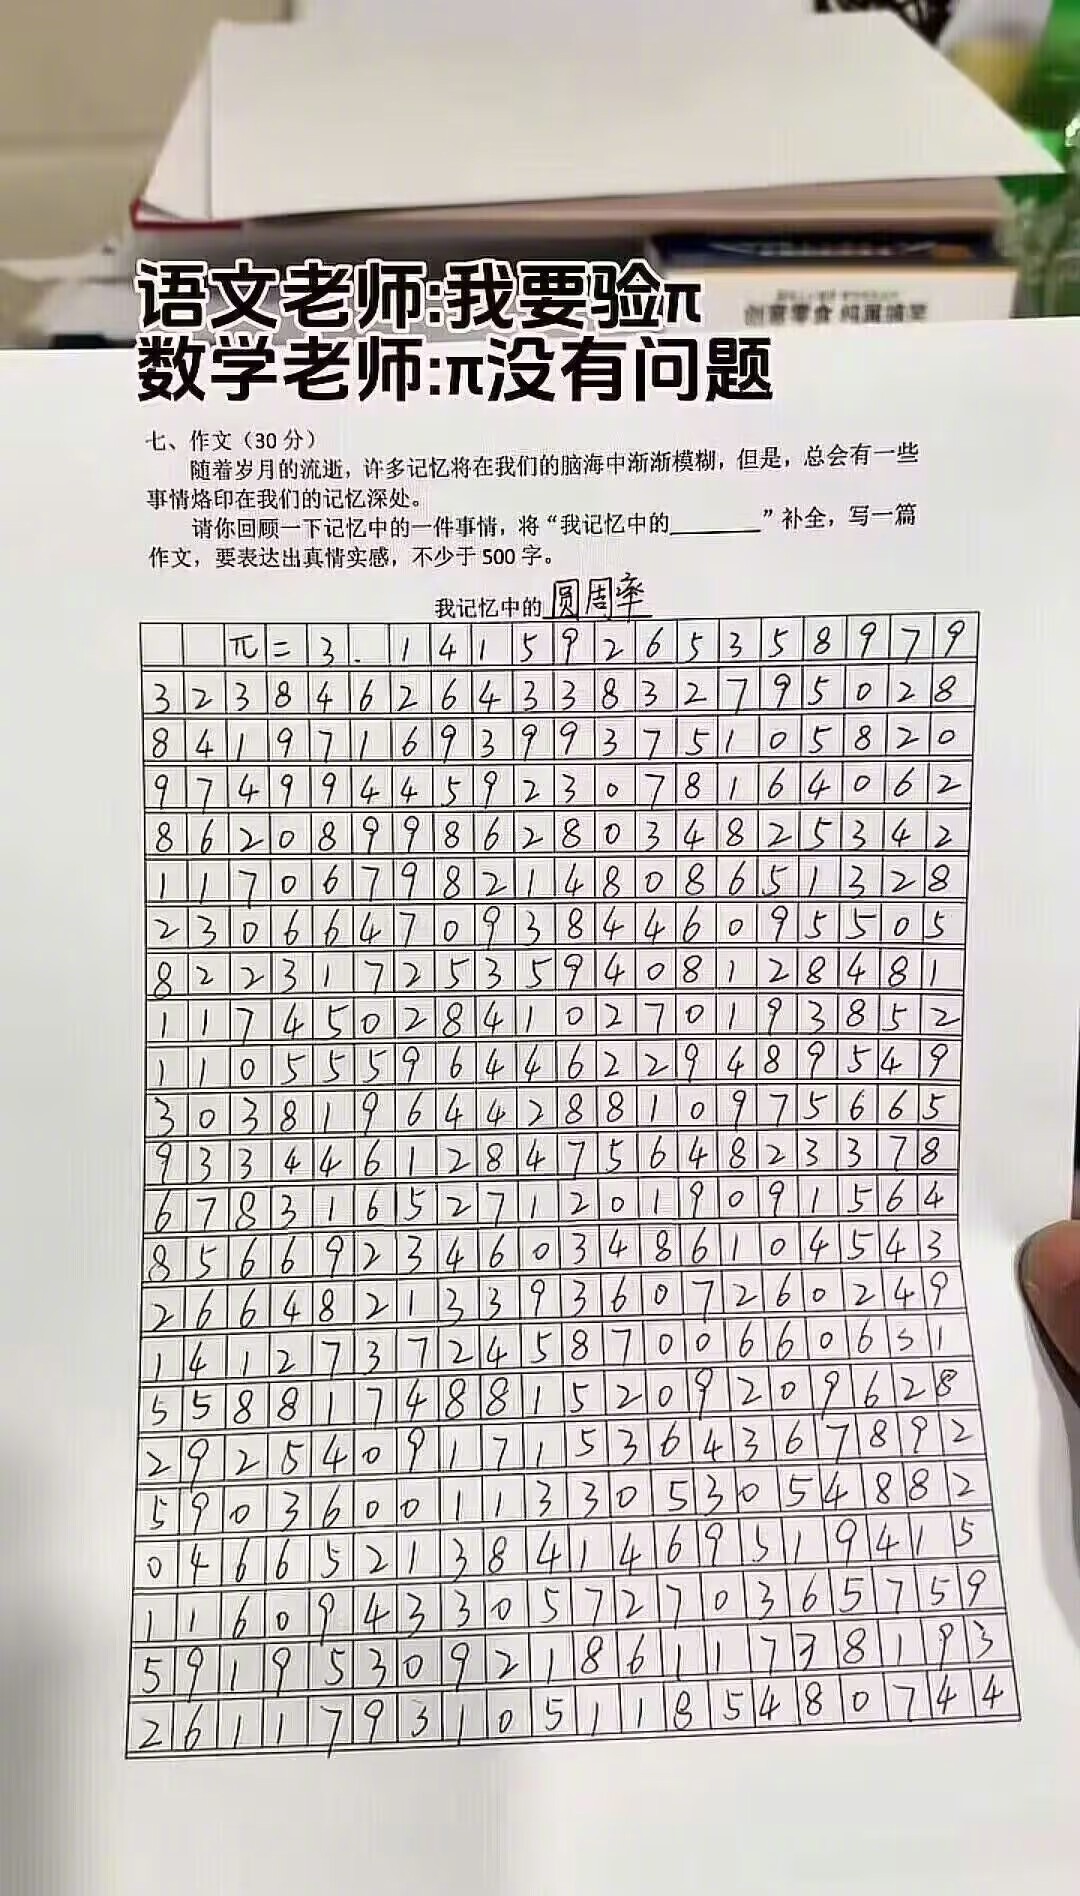 语文老师:我要验π
数学老师:π没有问题
创意零食 纯属搞笑
七、作文（30 分）
随着岁月的流逝，许多记忆将在我们的脑海中渐渐模糊，但是，总会有一些
事情烙印在我们的记忆深处。
请你回顾一下记忆中的一件事情，将“我记忆中的________”补全，写一篇
作文，要表达出真情实感，不少于 500 字。
我记忆中的圆周率
π=3.14159265358979
32384626433832795028
84197169399375105820
97499445923078164062
86208998628034825342
11706798214808651328
23066470938446095505
82231725359408128481
11745028410270193852
11055596446229489549
30381964428810975665
93344612847564823378
67831652712019091564
85669234603486104543
26648213393607260249
14127372458700660631
55881748815209209628
29254091715364367892
59036001133053054882
04665213841469519415
11609433057270365759
59195309218611738193
26117931051185480744